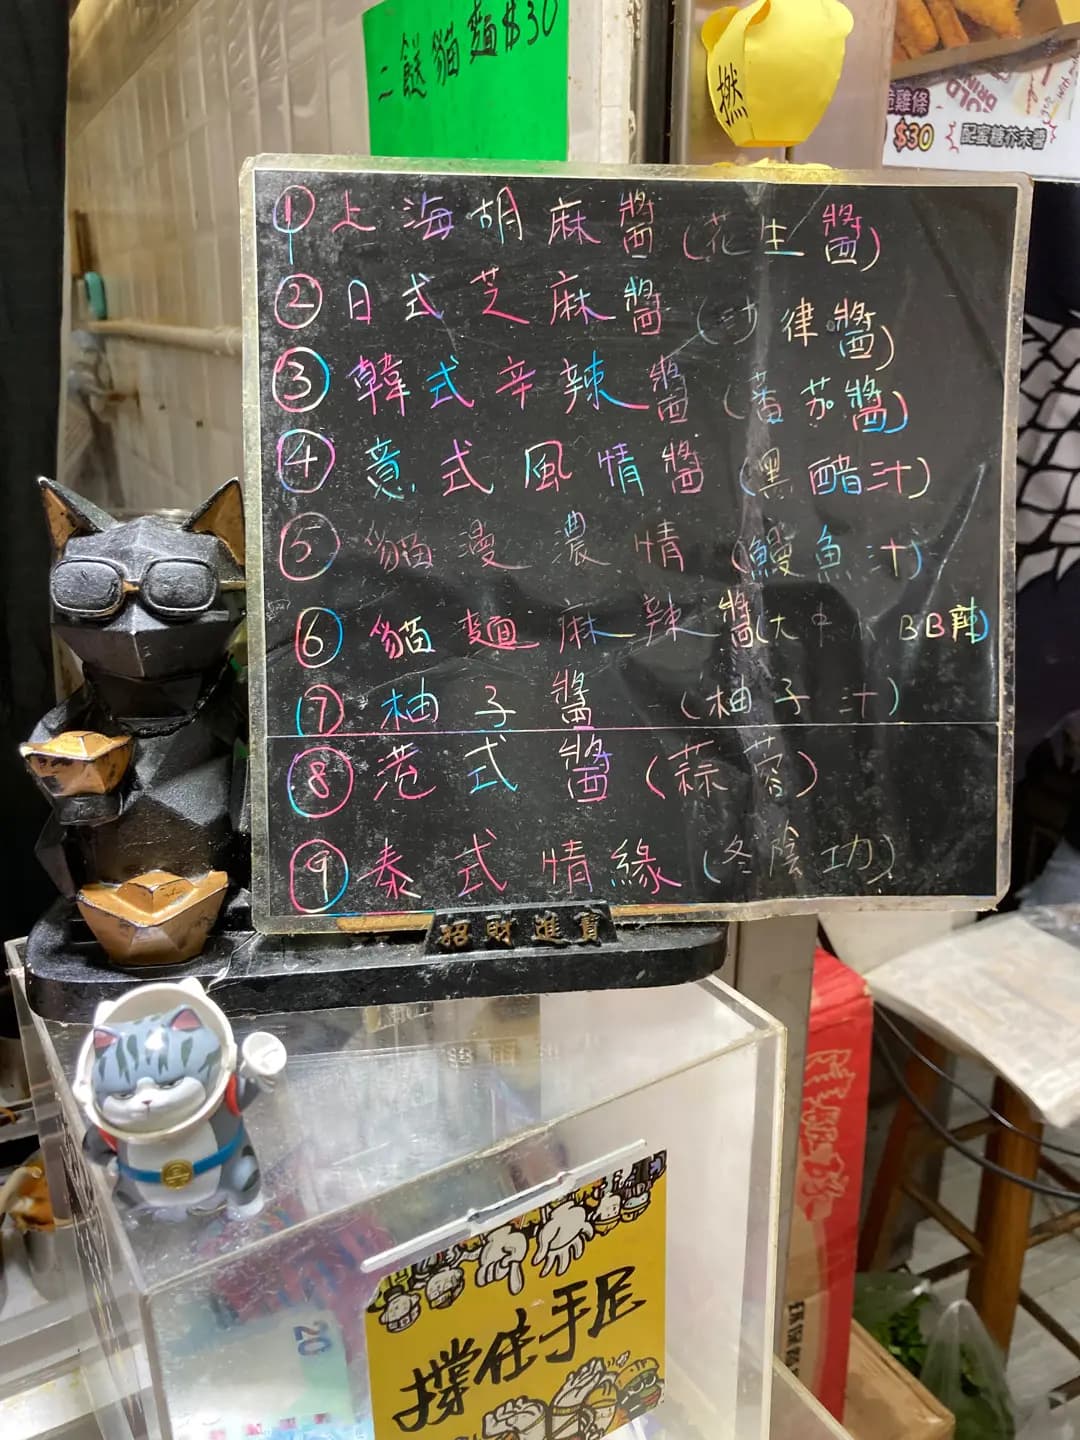 二餸貓麵$30
撚
雞條
$30
配蜜糖芥末醬
① 上海胡麻醬 (花生醬)
② 日式芝麻醬 (沙律醬)
③ 韓式辛辣醬 (蕃茄醬)
④ 意式風情醬 (黑醋汁)
⑤ 貓漫濃情 (鰻魚汁)
⑥ 貓麵麻辣醬(大中小BB辣)
⑦ 柚子醬 (柚子汁)
⑧ 港式醬 (蒜蓉)
⑨ 泰式情緣 (冬陰功)
招財進寶
20
撐住手足